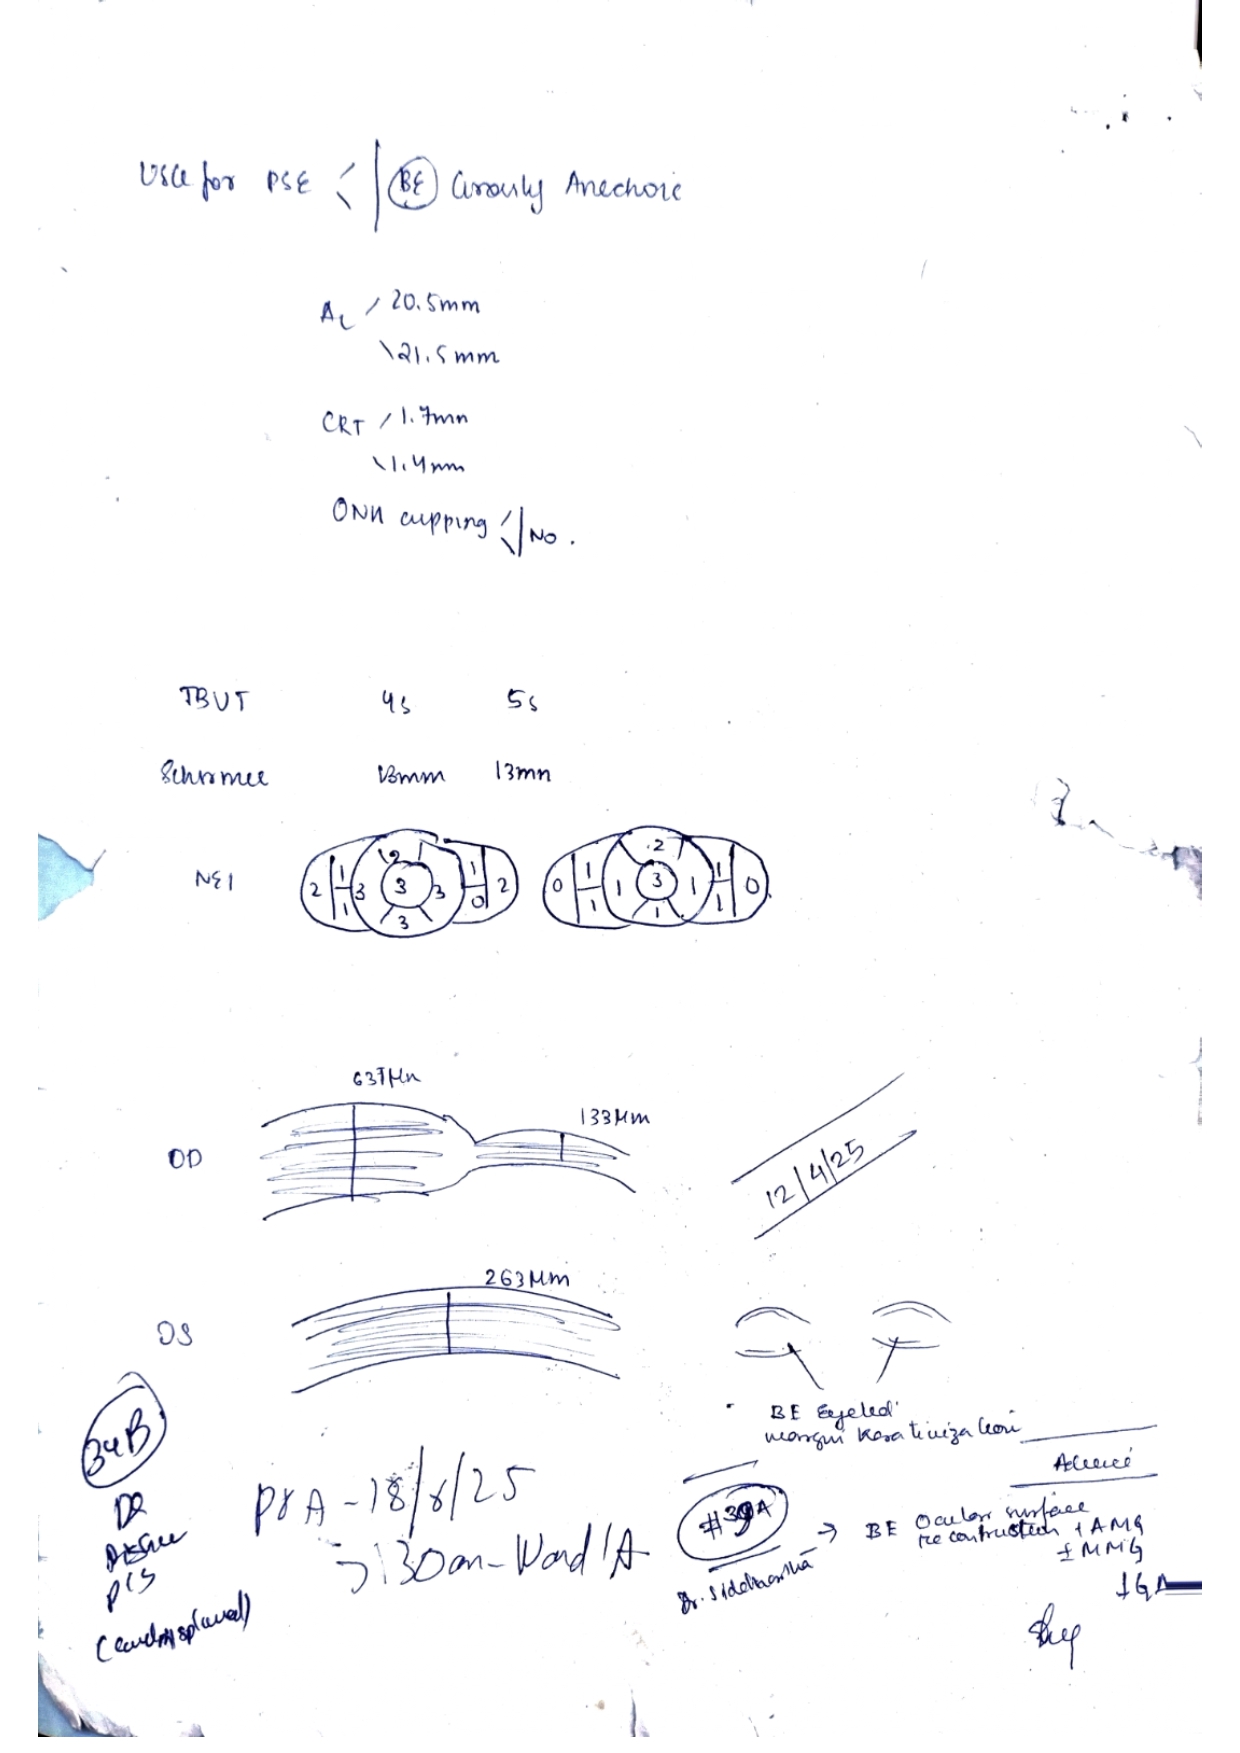 USG for PSE < | BE Grossly Anechoic
AL / 20.5mm
\ 21.5mm
CRT / 1.7mm
\ 1.4mm
ONH cupping < | NO.
TBUT 4s 5s
Schirmer 13mm 13mm
NEI 2 1 1 3 2 3 3 3 1 0 2 0 1 1 1 2 3 1 1 1 1 0
637μm
133μm
OD
12/4/25
263μm
OS
BE Eyelid
margin keratinization
34B
Advice
PIS
P8A - 18/6/25
7:30am - Ward 1A
#39A
Dr. Siddhartha
→ BE Ocular surface
recontruction ± AMG
± MMG
↓GA